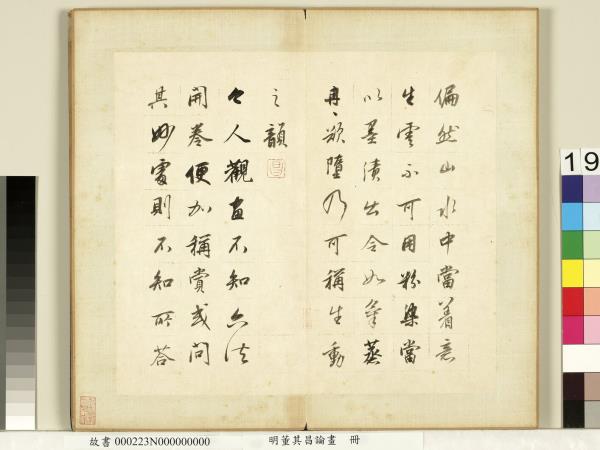 偏然山水中當着意
生雲不可用粉染當
以墨漬出令如氣蒸
冉〻欲墮乃可稱生動
之韻
今人觀畫不知六法
開卷便加稱賞或問
其妙處則不知所答
19
故書 000223N000000000 明董其昌論畫 冊